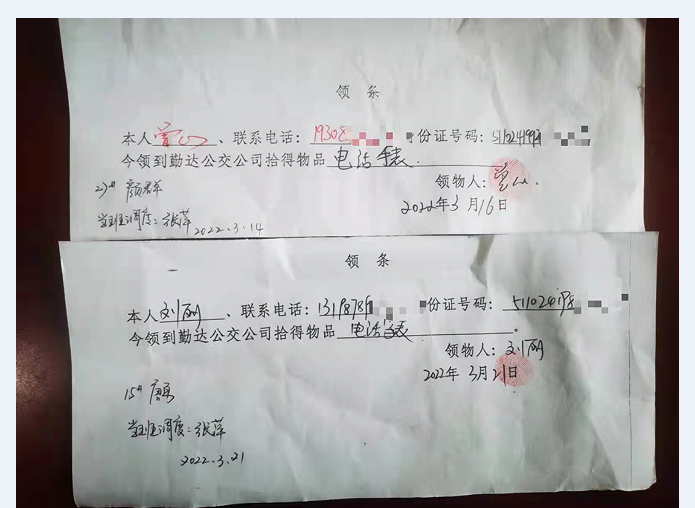 领 条
本人曾山、联系电话：19308 身份证号码：511024199
今领到勤达公交公司拾得物品 电话手表.
领物人：曾山.
27# 颜群
2022年3月16日
当班调度：张萍
2022.3.14
领 条
本人刘丽、联系电话：1319878 身份证号码：51102419
今领到勤达公交公司拾得物品 电话手表.
领物人：刘丽
2022年3月21日
15# 唐勇
当班调度：张萍
2022.3.21